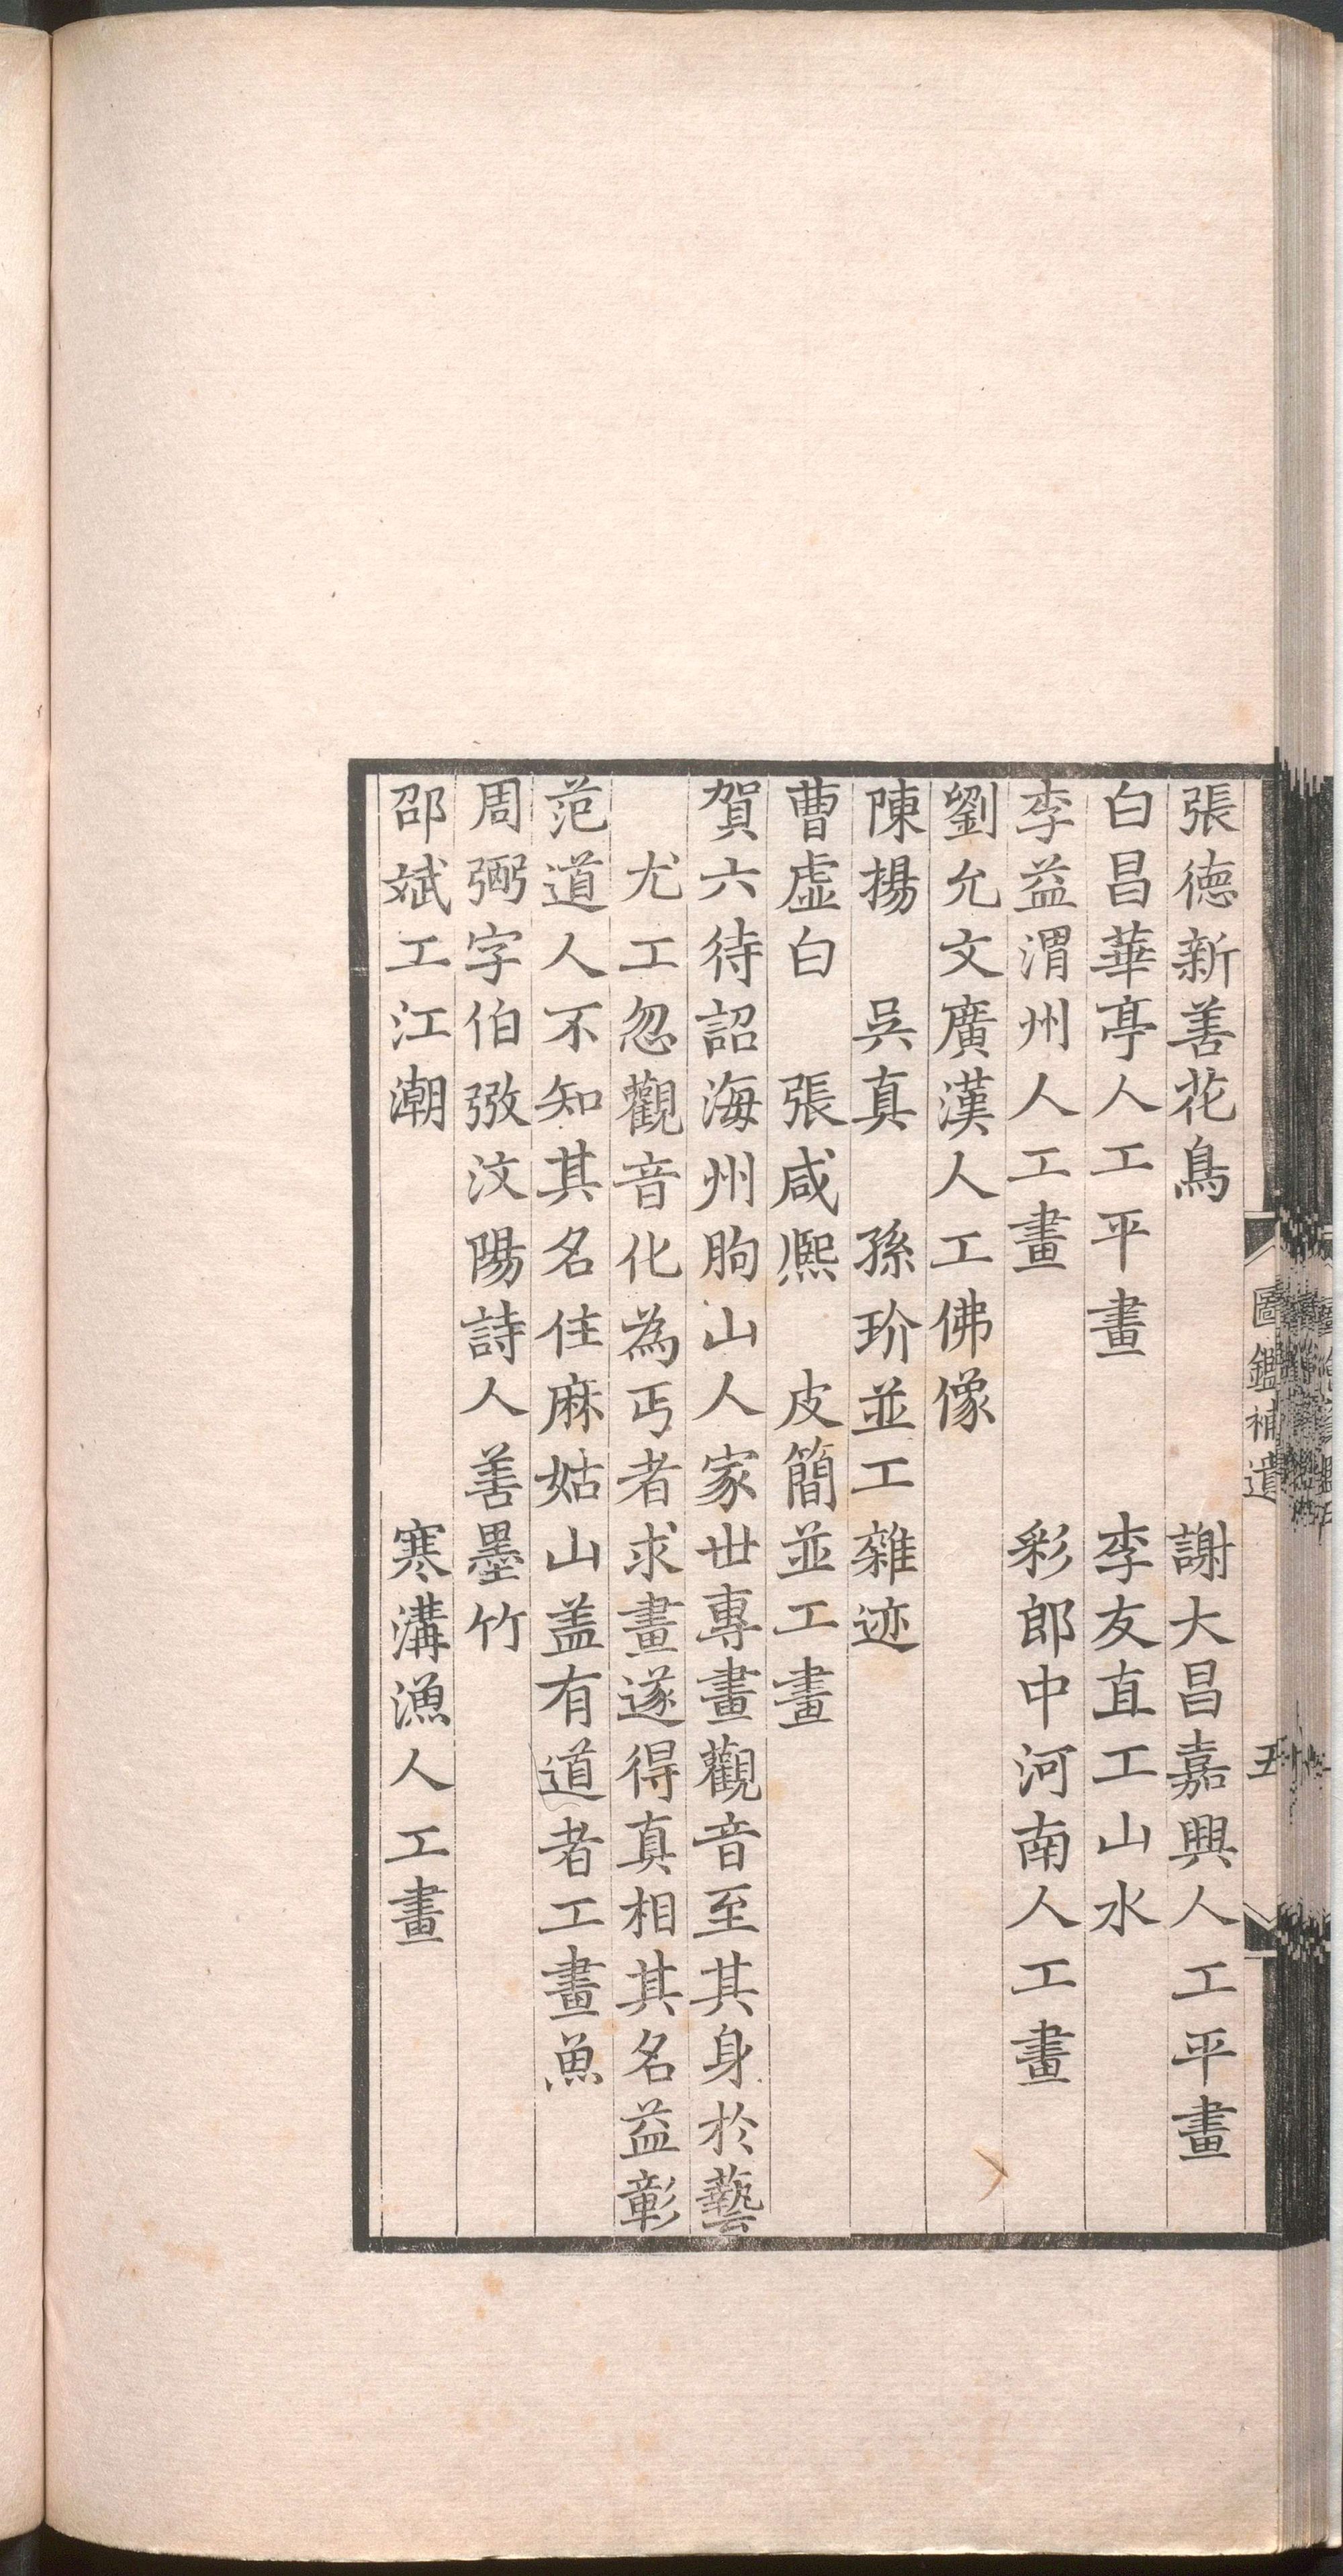 張德新善花鳥　謝大昌嘉興人工平畫
白昌華亭人工平畫　李友直工山水
李益渭州人工畫　彩郎中河南人工畫
劉允文廣漢人工佛像
陳揚　吳真　孫玠並工雜迹
曹虛白　張咸熈　皮簡並工畫
賀六待詔海州朐山人家世專畫觀音至其身於藝
尤工忽觀音化為丐者求畫遂得真相其名益彰
范道人不知其名住麻姑山盖有道者工畫魚
周弼字伯弜汶陽詩人善墨竹
邵斌工江潮　寒溝漁人工畫
圖鑑補遺　五